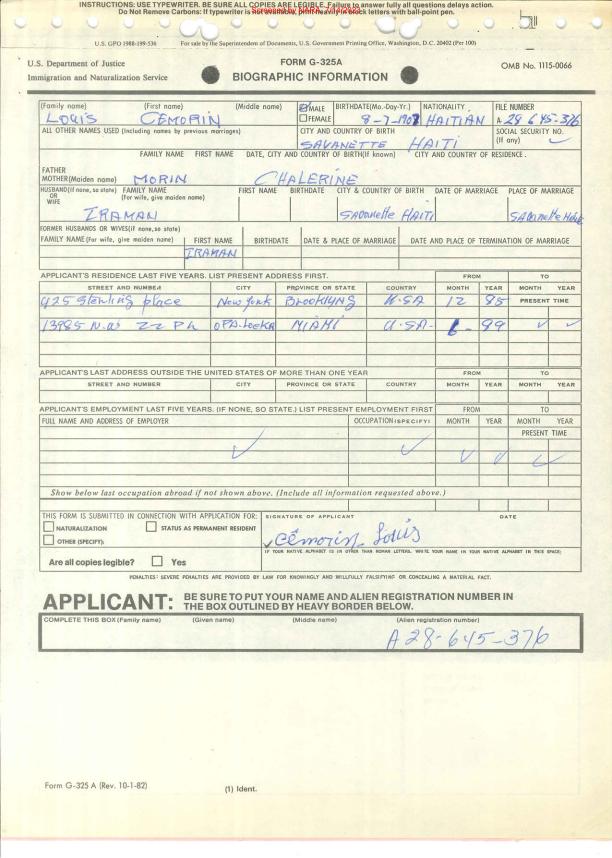 INSTRUCTIONS: USE TYPEWRITER. BE SURE ALL COPIES ARE LEGIBLE. Failure to answer fully all questions delays action.
Do Not Remove Carbons: If typewriter is not available, print heavily in block letters with ball-point pen.
U.S. GPO 1988-199-536 For sale by the Superintendent of Documents, U.S. Government Printing Office, Washington, D.C. 20402 (Per 100)
U.S. Department of Justice
Immigration and Naturalization Service
FORM G-325A
BIOGRAPHIC INFORMATION
OMB No. 1115-0066
(Family name) (First name) (Middle name) MALE BIRTHDATE(Mo.-Day-Yr.) NATIONALITY FILE NUMBER
LOUIS CEMORIN FEMALE 8-7-1907 HAITIAN A- 28 645-376
ALL OTHER NAMES USED (Including names by previous marriages) CITY AND COUNTRY OF BIRTH SOCIAL SECURITY NO. (If any)
SAVANETTE HAITI
FAMILY NAME FIRST NAME DATE, CITY AND COUNTRY OF BIRTH(If known) CITY AND COUNTRY OF RESIDENCE.
FATHER
MOTHER(Maiden name) MORIN CHALERINE
HUSBAND(If none, so state) OR WIFE FAMILY NAME (For wife, give maiden name) FIRST NAME BIRTHDATE CITY & COUNTRY OF BIRTH DATE OF MARRIAGE PLACE OF MARRIAGE
IRAMAN SAVanette HAITI SAVanette
FORMER HUSBANDS OR WIVES(if none,so state)
FAMILY NAME(For wife, give maiden name) FIRST NAME BIRTHDATE DATE & PLACE OF MARRIAGE DATE AND PLACE OF TERMINATION OF MARRIAGE
IRAMAN
APPLICANT'S RESIDENCE LAST FIVE YEARS. LIST PRESENT ADDRESS FIRST. FROM TO
STREET AND NUMBER CITY PROVINCE OR STATE COUNTRY MONTH YEAR MONTH YEAR
925 Sterling place New York BROOKLYNG U-SA 12 85 PRESENT TIME
13985 N.W 22 PL OPA-Locka MIAMI U-SA- 6- 89
APPLICANT'S LAST ADDRESS OUTSIDE THE UNITED STATES OF MORE THAN ONE YEAR FROM TO
STREET AND NUMBER CITY PROVINCE OR STATE COUNTRY MONTH YEAR MONTH YEAR
APPLICANT'S EMPLOYMENT LAST FIVE YEARS. (IF NONE, SO STATE.) LIST PRESENT EMPLOYMENT FIRST FROM TO
FULL NAME AND ADDRESS OF EMPLOYER OCCUPATION(SPECIFY) MONTH YEAR MONTH YEAR
PRESENT TIME
Show below last occupation abroad if not shown above. (Include all information requested above.)
THIS FORM IS SUBMITTED IN CONNECTION WITH APPLICATION FOR: SIGNATURE OF APPLICANT DATE
NATURALIZATION STATUS AS PERMANENT RESIDENT
OTHER (SPECIFY):
Cêmorin Louis
IF YOUR NATIVE ALPHABET IS IN OTHER THAN ROMAN LETTERS, WRITE YOUR NAME IN YOUR NATIVE ALPHABET IN THIS SPACE:
Are all copies legible? Yes
PENALTIES: SEVERE PENALTIES ARE PROVIDED BY LAW FOR KNOWINGLY AND WILLFULLY FALSIFYING OR CONCEALING A MATERIAL FACT.
APPLICANT: BE SURE TO PUT YOUR NAME AND ALIEN REGISTRATION NUMBER IN
THE BOX OUTLINED BY HEAVY BORDER BELOW.
COMPLETE THIS BOX (Family name) (Given name) (Middle name) (Alien registration number)
A 28-645-376
Form G-325 A (Rev. 10-1-82)
(1) Ident.